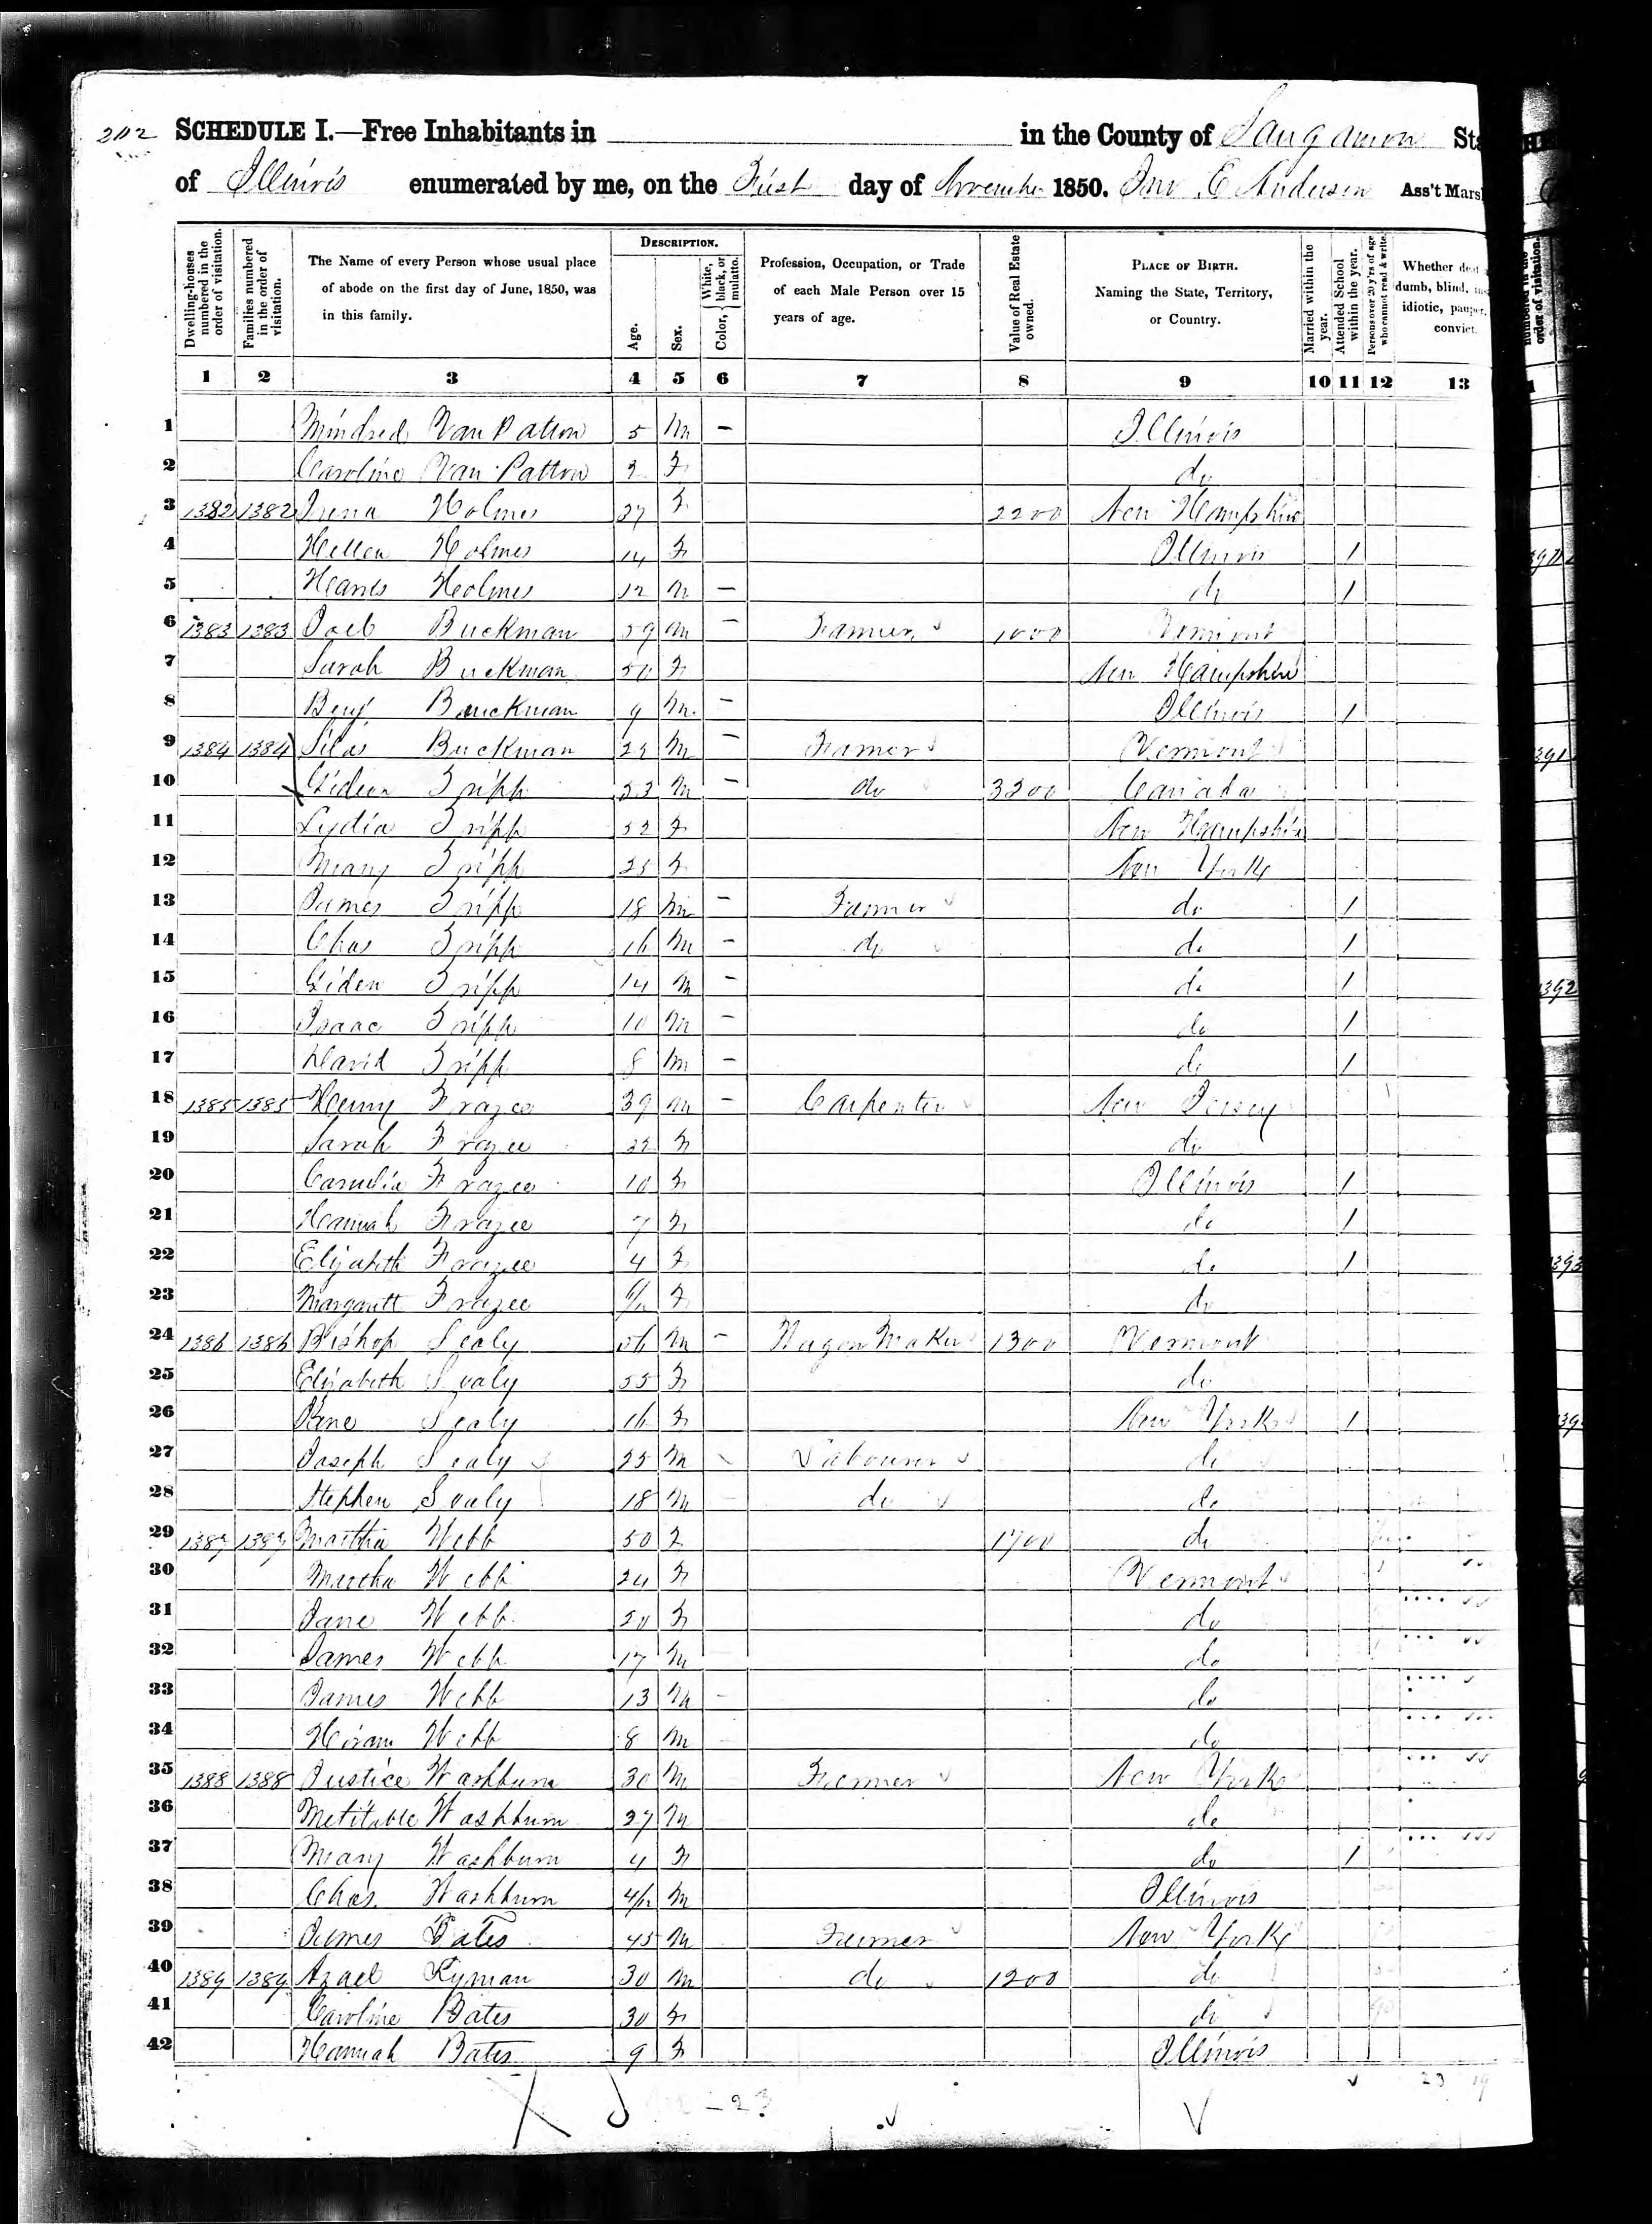 SCHEDULE I.—Free Inhabitants in in the County of Sangamon
of Illinois enumerated by me, on the First day of November 1850. Jno E Anderson Ass't Marsh
Dwelling-houses numbered in the order of visitation.
Families numbered in the order of visitation.
The Name of every Person whose usual place of abode on the first day of June, 1850, was in this family.
DESCRIPTION.
Age.
Sex.
Color, White, black, or mulatto.
Profession, Occupation, or Trade of each Male Person over 15 years of age.
Value of Real Estate owned.
PLACE OF BIRTH. Naming the State, Territory, or Country.
Married within the year.
Attended School within the year.
Persons over 20 y'rs of age who cannot read & write.
Whether deaf dumb, blind, idiotic, pauper, convict.
1 2 3 4 5 6 7 8 9 10 11 12 13
1 Van Patton 5 M – Illinois
2 Caroline Van Patton 2 F do
3 1382 1382 Irena Holmes 37 F 2200 New Hampshire
4 Hellen Holmes 14 F Illinois 1
5 Holmes 12 M – do 1
6 1383 1383 Joel Buckman 59 M – Farmer 1000 Vermont
7 Sarah Buckman 50 F New Hampshire
8 Benj Buuckman 9 M – Illinois 1
9 1384 1384 Silas Buckman 25 M – Farmer Vermont
10 Gideon Tripp 53 M – do 3200 Canada
11 Lydia Tripp 52 F New Hampshire
12 Mary Tripp 25 F New York
13 James Tripp 18 M – Farmer do 1
14 Chas Tripp 16 M – do do 1
15 Giden Tripp 14 M – do 1
16 Isaac Tripp 10 M – do 1
17 David Tripp 8 M – do 1
18 1385 1385 Henry Frazee 39 M – Carpenter New Jersey
19 Sarah Frazee 32 F do
20 Frazee 10 F Illinois 1
21 Hannah Frazee 7 F do 1
22 Elizabeth Frazee 4 F do 1
23 Margarett Frazee F do
24 1386 1386 Bishop Sealy 56 M – Wagon Maker 1300 Vermont
25 Elizabeth Sealy 55 F do
26 Jane Sealy 16 F New York 1
27 Joseph Sealy 25 M Labourer do
28 Stephen Sealy 18 M do do
29 1387 1387 Martha Webb 50 F 1700 do
30 Martha Webb 24 F Vermont
31 Jane Webb 20 F do
32 James Webb 17 M do
33 James Webb 13 M – do
34 Hiram Webb 8 M do
35 1388 1388 Justice Washburn 30 M Farmer New York
36 Metitable Washburn 27 M do
37 Mary Washburn 4 F do 1
38 Chas. Washburn 4/12 M Illinois
39 James Bates 45 M Farmer New York
40 1389 1389 Azael Lyman 30 M do 1200 do
41 Caroline Bates 30 F do
42 Hannah Bates 9 F Illinois